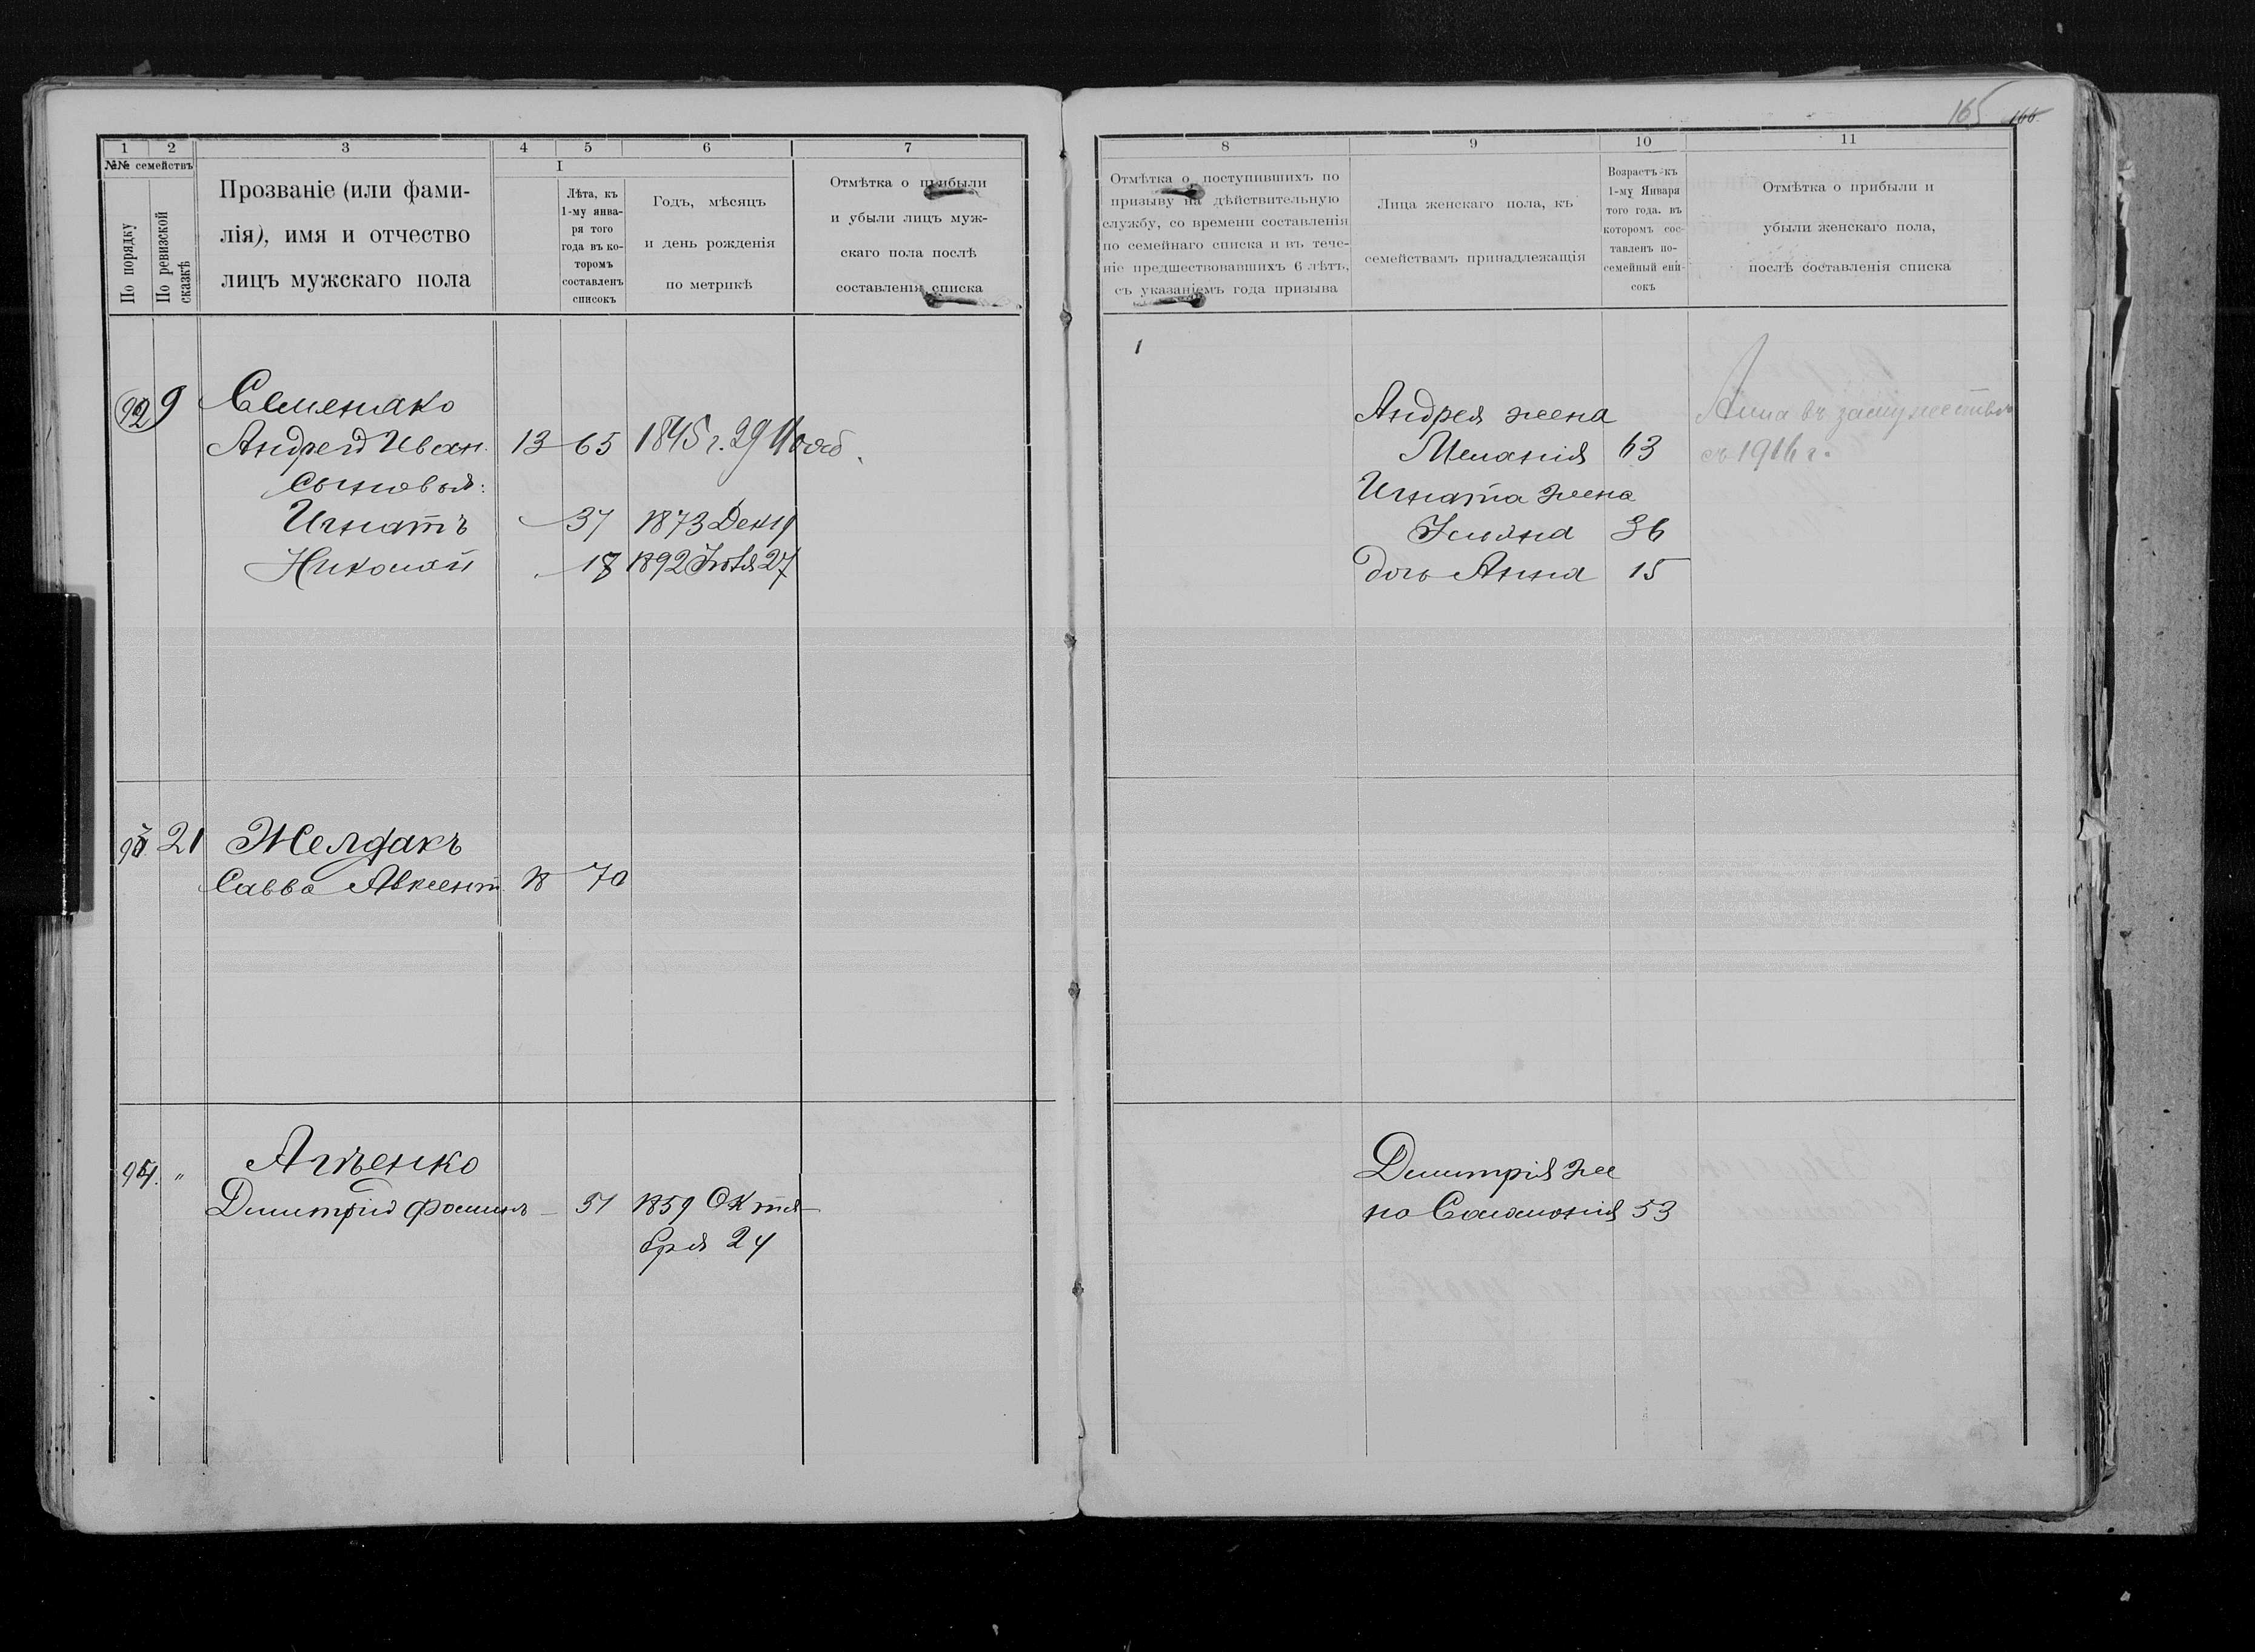 165 166
1 2 3 4 5 6 7
№№ семействъ
По порядку
По ревизской сказкѣ
Прозваніе (или фами-
лія), имя и отчество
лицъ мужскаго пола
I
Лѣта, къ
1-му янва-
ря того
года въ ко-
торомъ
составленъ
списокъ
Годъ, мѣсяцъ
и день рожденія
по метрикѣ
Отмѣтка о прибыли
и убыли лицъ муж-
скаго пола послѣ
составленія списка
92 9 Семенако
Андрей Иван. 13 65 1845 г. 29 Нояб.
Сыновья:
Игнатъ 37 1873 Дек 19
Николай 18 1892 Іюля 27
93 21 Желдакъ
Савва Авксент. 18 70
94. " Агѣенко
Димитрій Фоминъ - 51 1859 Октя-
бря 24
8 9 10 11
Отмѣтка о поступившихъ по
призыву на дѣйствительную
службу, со времени составленія
по семейнаго списка и въ тече-
ніе предшествовавшихъ 6 лѣтъ,
съ указаніемъ года призыва
Лица женскаго пола, къ
семействамъ принадлежащія
Возрастъ къ
1-му Января
того года. въ
которомъ сос-
тавленъ по-
семейный спи-
сокъ
Отмѣтка о прибыли и
убыли женскаго пола,
послѣ составленія списка
1
Андрея жена Анна въ замужествѣ
Меланія 63 съ 1916 г.
Игната жена
Ульяна 36
дочь Анна 15
Димитрія же
на Соломонія 53